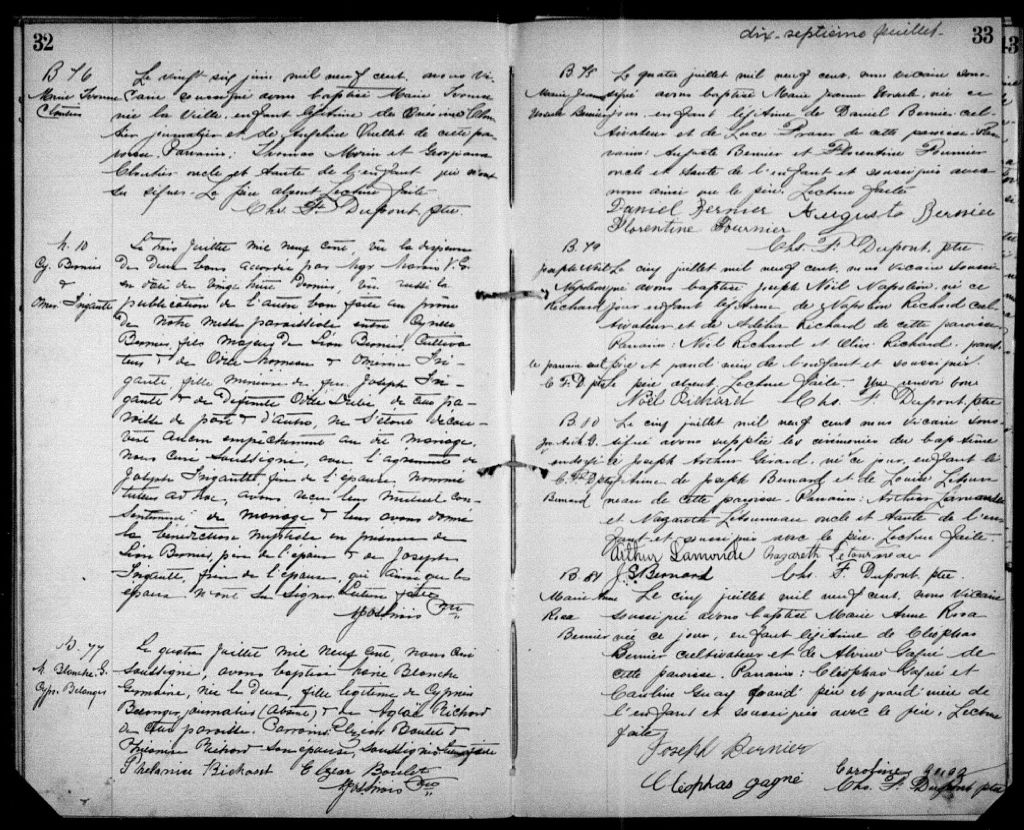 32
B 76
Marie Ivonne
Cloutier
Le vingt six juin mil neuf cent, nous vi-
caire soussigné avons baptisé Marie Ivonne
née la veille, enfant légitime de Onésime Clou-
tier journalier et de Angelina Ouellet de cette pa-
roisse. Parrain: Thomas Morin et Georgiana
Cloutier oncle et tante de l'enfant qui n'ont
su signer. Le père absent Lecture faite
Chs. F. Dupont, ptre.
M. 10
Cy. Bernier
&
Le trois Juillet mil neuf cent, vu la dispense
de deux bans accordée par Mgr Marois V. G.
en date du vingt neuf dernier, vu aussi la
publication de l'autre ban faite au prône
de notre messe paroissiale entre Cyrille
Bernier, fils majeur de Léon Bernier, Cultiva-
teur & de Odile Morneau &
fille mineure de feu Joseph
& de Défunte de cette pa-
roisse de part & d'autre, ne s'étant décou-
vert aucun empêchement au dit mariage,
nous curé soussigné, avec l'agrément de
Joseph frère de l'épouse, nommé
tuteur ad hoc, avons reçu leur mutuel con-
sentement de mariage & leur avons donné
la bénédiction nuptiale en présence de
Léon Bernier, père de l'époux & de Joseph
frère de l'épouse, qui ainsi que les
époux n'ont su signer. Lecture faite
B. 77
M. Blanche G.
Cyp. Belanger
Le quatre juillet mil neuf cent nous curé
soussigné, avons baptisé Marie Blanche
Germaine, née les deux, fille légitime de Cyprien
Belanger, journalier (absent) & de Aglaé Richard
de cette paroisse. Parrain Elzéar Boulet &
Philomène Richard son épouse, soussignés lecture faite
Phelanise Richard Elzear Boulet
dix-septième feuillet
33
B 78
Marie Jeanne
Bernier
Le quatre juillet mil neuf cent, nous vicaire sous-
signé avons baptisé Marie Jeanne née ce
jour, enfant légitime de Daniel Bernier cul-
tivateur et de Luce Fraser de cette paroisse. Par-
rains: Auguste Bernier et Florentine Fournier
oncle et tante de l'enfant et soussignés avec
nous ainsi que le père. Lecture faite
Daniel Bernier Auguste Bernier
Florentine Fournier
Chs. F. Dupont, ptre
B. 79
Joseph Noël
Napoléon
Richard
Le cinq juillet mil neuf cent, nous vicaire soussi-
gné avons baptisé Joseph Noël Napoléon né ce
jour enfant légitime de Napoléon Richard cul-
tivateur et de Adélia Richard de cette paroisse
Parrains: Noël Richard et Richard, grand
père et grand mère de l'enfant et soussignés.
C. F. D. ptre
le père absent Lecture faite - Un renvoi bon
Noël Richard Chs. F. Dupont, ptre
B. 80
Jos. Arth. G.
C. F. D. ptre
Bernard
Le cinq juillet mil neuf cent nous vicaire sous-
signé avons suppléé les cérémonies du baptême
à Joseph Arthur Girard, né ce jour, enfant lé-
gitime de Joseph Bernard et de Louise Létour-
neau de cette paroisse. Parrains: Arthur Lamonde
et Nazareth Létourneau oncle et tante de l'en-
fant et soussignés avec le père Lecture faite.
Arthur Lamonde Nazareth Létourneau
J. S. Bernard Chs. F. Dupont, ptre.
B 81
Marie Anne
Rosa
Bernier
Le cinq juillet mil neuf cent, nous vicaire
soussigné avons baptisé Marie Anne Rosa
née ce jour, enfant légitime de Cléophas
Bernier cultivateur et de Alvine Gagné de
cette paroisse. Parrains: Cléophas Gagné et
Caroline Guay grand père et grand'mère de
l'enfant et soussignés avec le père, Lecture
faite
Joseph Bernier
Cléophas gagné Caroline
Chs. F. Dupont ptre